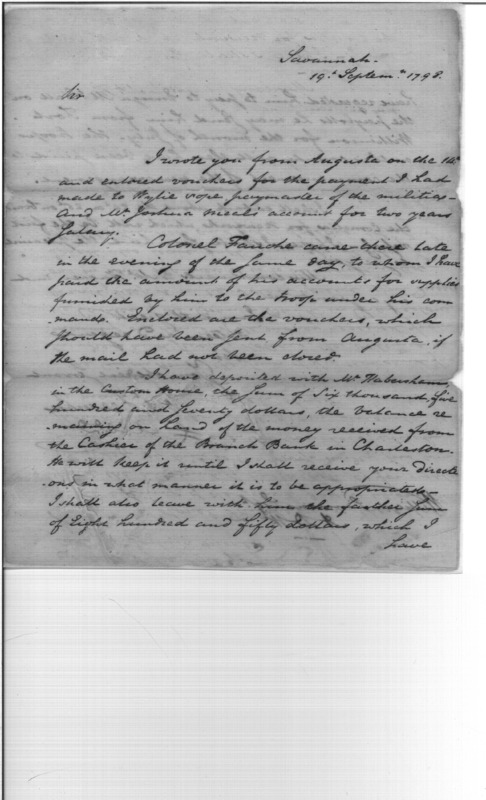 Savannah.
19th Septemr 1798.
Sir
I wrote you from Augusta on the 14th
and enclosed vouchers for the payment I had
made to Wylie Pope paymaster of the militia—
And Mr. Joshua Meals account for two years
Salary.
Colonel Fauche came there late
in the evening of the same day, to whom I have
paid the amount of his accounts for supplies
furnished by him to the troop under his com
mand. Enclosed are the vouchers, which
should have been sent from Augusta, if
the mail had not been closed.
I have deposited with Mr. Habersham,
in the Custom House, the sum of Six thousand, five
hundred and seventy dollars, the balance re
maining on hand of the money received from
the Cashier of the Branch Bank in Charleston.
He will keep it until I shall receive your directi
ons in what manner it is to be appropriated—
I shall also leave with him the farther sum
of Eight hundred and fifty dollars, which I
have